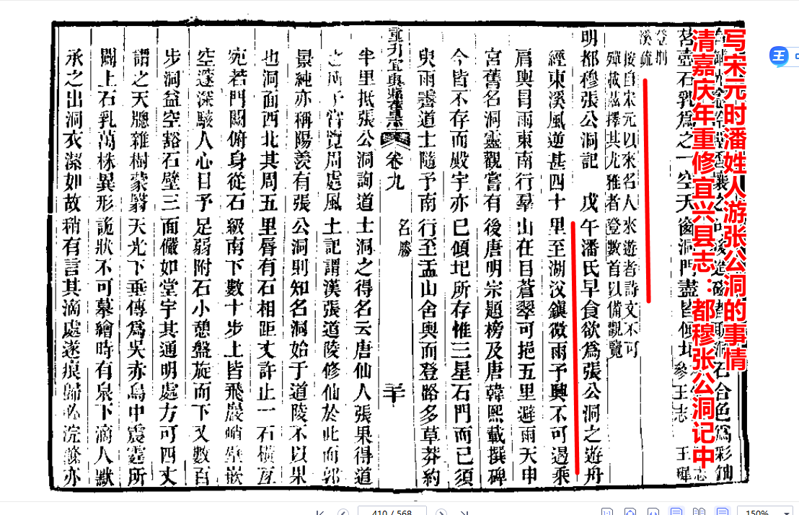 写宋元时潘姓人游张公洞的事情
清嘉庆年重修宜兴县志：都穆张公洞记中
石乳爲之一空天窗洞門盡皆傾圯參王志 王穉
登荆
溪疏
按自宋元以來名人來遊者詩文不可
殫載茲擇其尤雅者登數首以備觀覽
明都穆張公洞記 戊午潘氏早食欲爲張公洞之遊舟
經東溪風逆甚四十里至湖㳇鎮微雨予興不可遏乘
肩輿冒雨東南行羣山在目蒼翠可挹五里避雨天申
宮舊名洞靈觀嘗有後唐明宗題榜及唐韓熙載撰碑
今皆不存而殿宇亦已傾圯所存惟三星石門而已須
臾雨霽道士隨予南行至盂山舍輿而登路多草莽約
重刊宜興縣舊志 卷九 名勝 二十
半里抵張公洞詢道士洞之得名云唐仙人張果得道
之所予嘗覽周處風土記謂漢張道陵修仙於此而郭
景純亦稱陽羨有張公洞則知名洞始于道陵不以果
也洞面西北其周五里唇有石相距丈許止一石橫亙
宛若門閾俯身從石級南下數十步上皆飛巖峭壁嵌
空邃深駭人心目予足弱附石小憩盤旋而下又數百
步洞益空豁石壁三面儼如堂宇其通明處方可四丈
謂之天牕雜樹蒙翳天光下垂傳爲吳赤烏中震霆所
闢上石乳萬株異形詭狀不可摹繪時有泉下滴人默
承之出洞衣潔如故稍有言其滴處遂痕歸必浣滌亦
410 / 568
150%